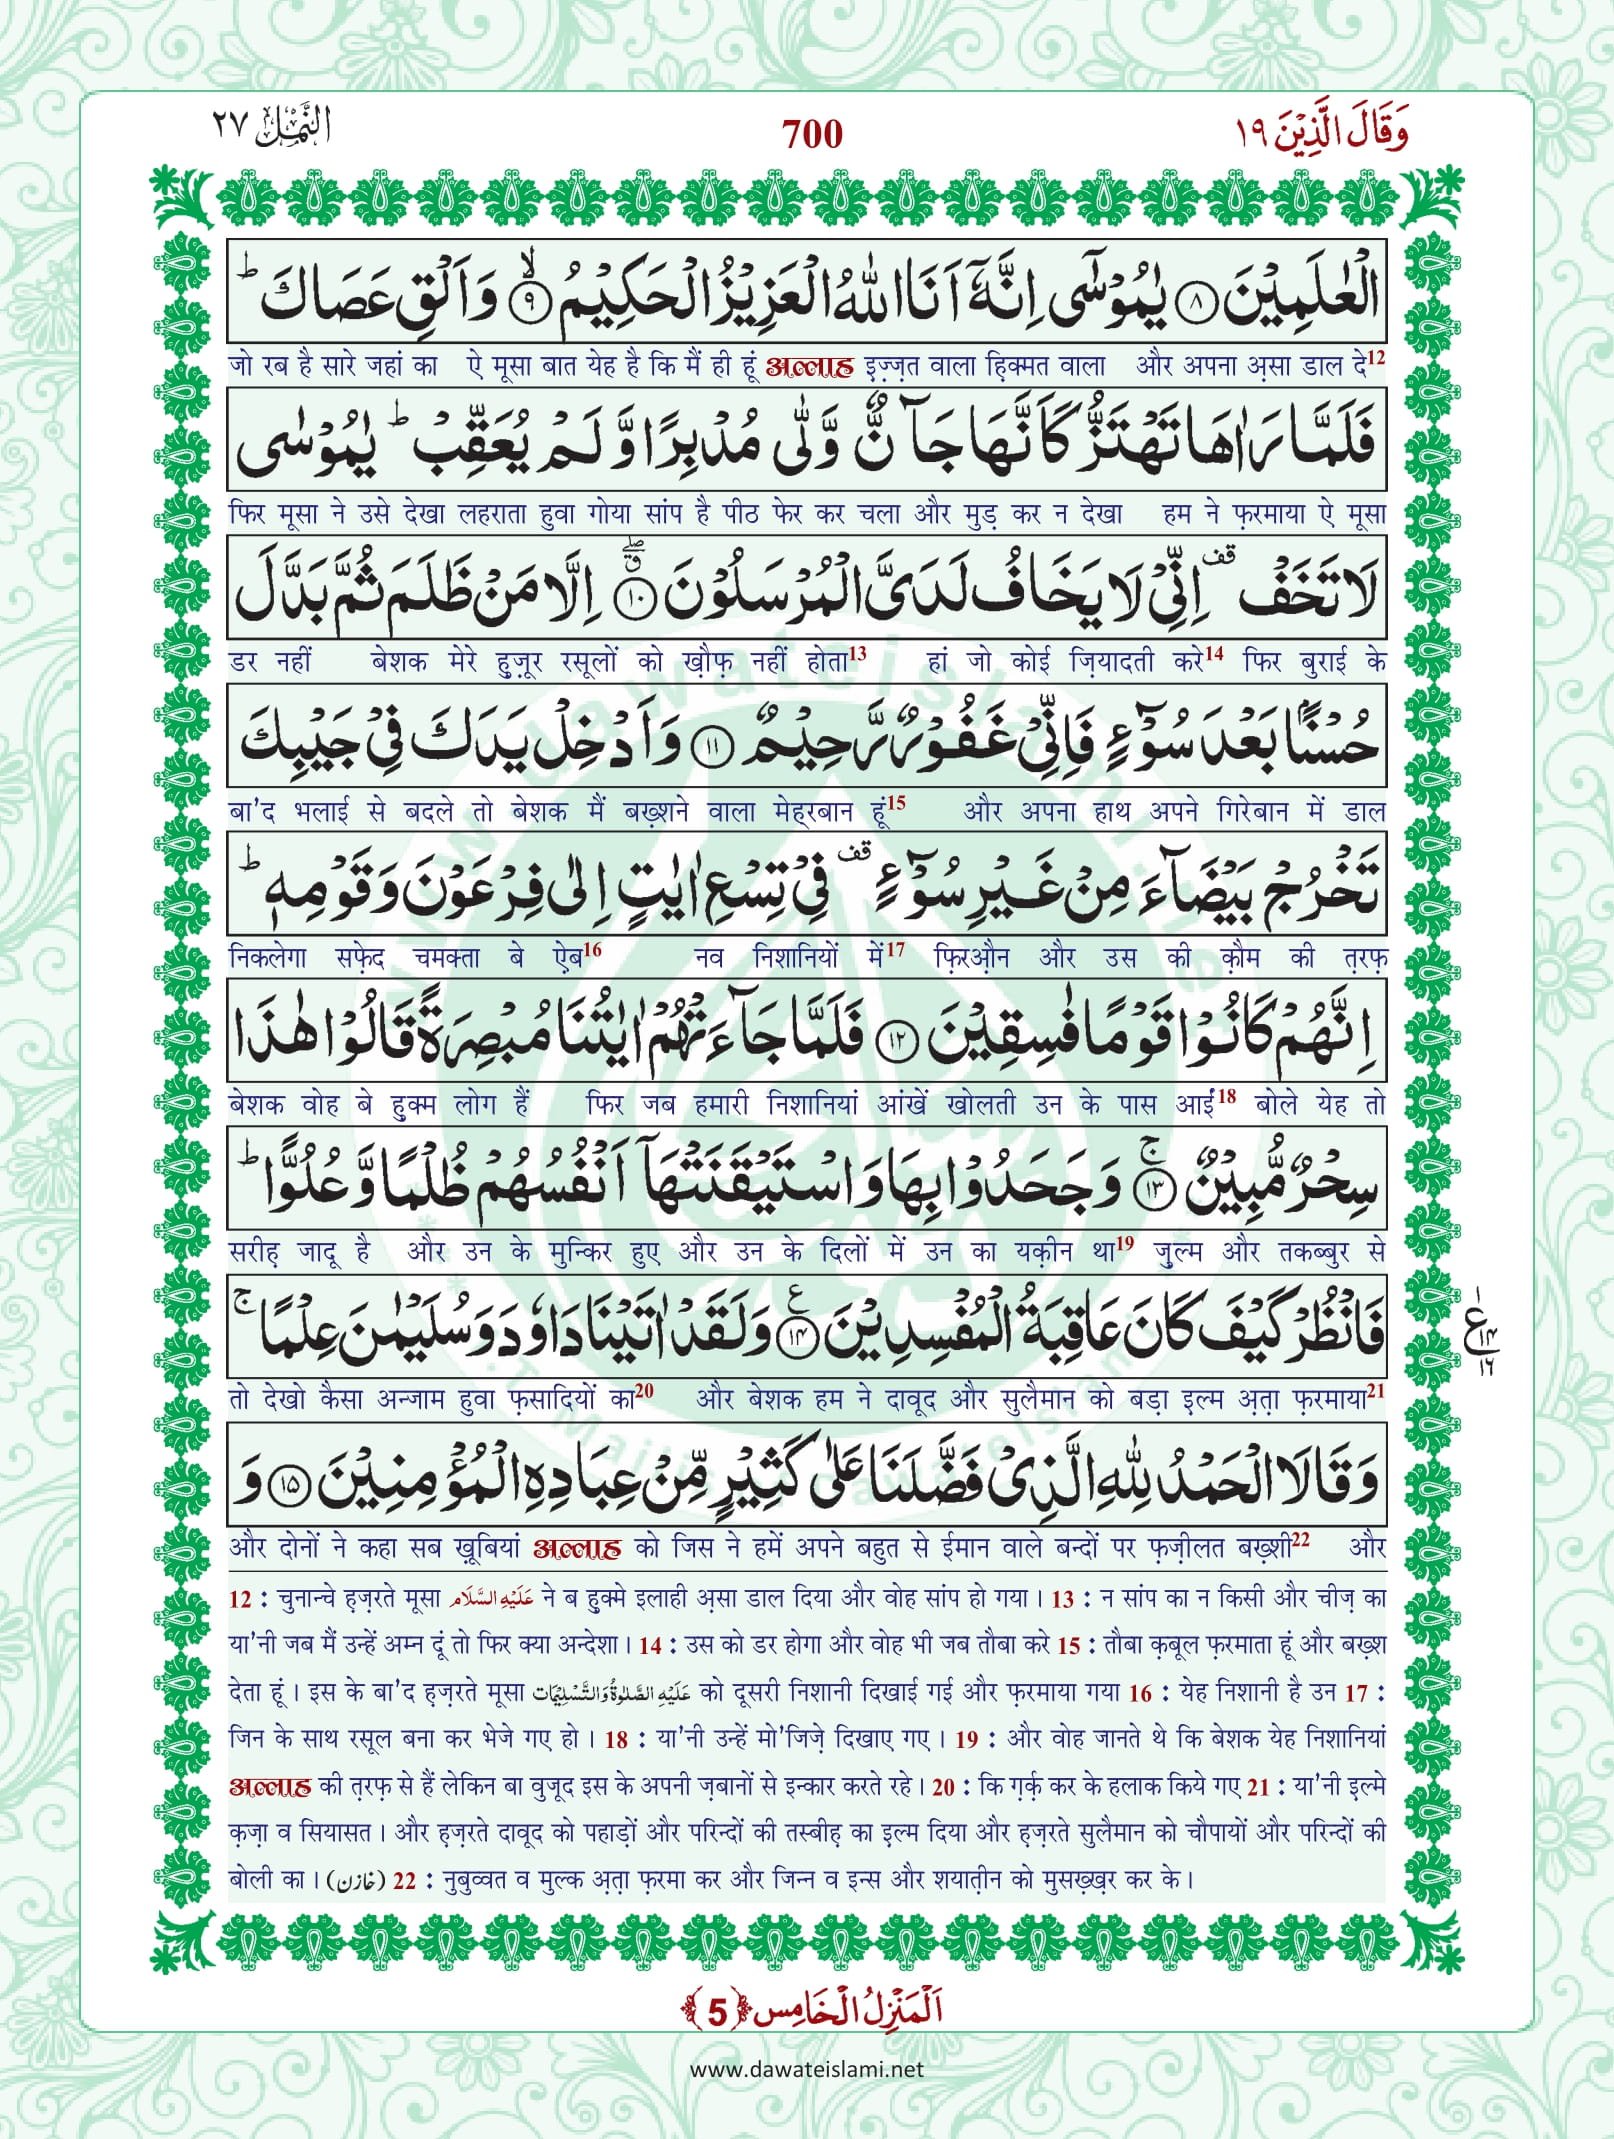 وَقَالَ الَّذِیْنَ ١٩
700
النَّمْل ٢٧
الْعٰلَمِیْنَ ﴿٨﴾ یٰمُوْسٰۤى اِنَّهٗۤ اَنَا اللّٰهُ الْعَزِیْزُ الْحَكِیْمُ ﴿٩﴾ۙ وَ اَلْقِ عَصَاكَ ؕ
जो रब है सारे जहां का ऐ मूसा बात येह है कि मैं ही हूं अल्लाह इज़्ज़त वाला हि़क्मत वाला और अपना अ़सा डाल दे12
فَلَمَّا رَاٰهَا تَهْتَزُّ كَاَنَّهَا جَآنٌّ وَّلّٰى مُدْبِرًا وَّ لَمْ یُعَقِّبْ ؕ یٰمُوْسٰى
फिर मूसा ने उसे देखा लहराता हुवा गोया सांप है पीठ फेर कर चला और मुड़ कर न देखा हम ने फ़रमाया ऐ मूसा
لَا تَخَفْ قف اِنِّیْ لَا یَخَافُ لَدَیَّ الْمُرْسَلُوْنَ ﴿١٠﴾ۗۖ اِلَّا مَنْ ظَلَمَ ثُمَّ بَدَّلَ
डर नहीं बेशक मेरे हु़ज़ूर रसूलों को ख़ौफ़ नहीं होता13 हां जो कोई ज़ियादती करे14 फिर बुराई के
حُسْنًۢا بَعْدَ سُوْٓءٍ فَاِنِّیْ غَفُوْرٌ رَّحِیْمٌ ﴿١١﴾ وَ اَدْخِلْ یَدَكَ فِیْ جَیْبِكَ
बा’द भलाई से बदले तो बेशक मैं बख़्शने वाला मेहरबान हूं15 और अपना हाथ अपने गिरेबान में डाल
تَخْرُجْ بَیْضَآءَ مِنْ غَیْرِ سُوْٓءٍ قف فِیْ تِسْعِ اٰیٰتٍ اِلٰى فِرْعَوْنَ وَ قَوْمِهٖ ؕ
निकलेगा सफे़द चमक्ता बे ऐ़ब16 नव निशानियों में17 फ़िरऔ़न और उस की क़ौम की त़रफ़
اِنَّهُمْ كَانُوْا قَوْمًا فٰسِقِیْنَ ﴿١٢﴾ فَلَمَّا جَآءَتْهُمْ اٰیٰتُنَا مُبْصِرَةً قَالُوْا هٰذَا
बेशक वोह बे हु़क्म लोग हैं फिर जब हमारी निशानियां आंखें खोलती उन के पास आईं18 बोले येह तो
سِحْرٌ مُّبِیْنٌ ﴿١٣﴾ۚ وَ جَحَدُوْا بِهَا وَ اسْتَیْقَنَتْهَاۤ اَنْفُسُهُمْ ظُلْمًا وَّ عُلُوًّا ؕ
सरीह़ जादू है और उन के मुन्किर हुए और उन के दिलों में उन का यक़ीन था19 ज़ुल्म और तकब्बुर से
فَانْظُرْ كَیْفَ كَانَ عَاقِبَةُ الْمُفْسِدِیْنَ ﴿١٤﴾ ع وَ لَقَدْ اٰتَیْنَا دَاوٗدَ وَ سُلَیْمٰنَ عِلْمًا ۚ
ع ١ ١٤ ١٦
तो देखो कैसा अन्जाम हुवा फ़सादियों का20 और बेशक हम ने दावूद और सुलैमान को बड़ा इ़ल्म अ़त़ा फ़रमाया21
وَ قَالَا الْحَمْدُ لِلّٰهِ الَّذِیْ فَضَّلَنَا عَلٰى كَثِیْرٍ مِّنْ عِبَادِهِ الْمُؤْمِنِیْنَ ﴿١٥﴾ وَ
और दोनों ने कहा सब ख़ूबियां अल्लाह को जिस ने हमें अपने बहुत से ईमान वाले बन्दों पर फ़ज़ीलत बख़्शी22 और
12 : चुनान्चे ह़ज़रते मूसा عَلَیْهِ السَّلَام ने ब हु़क्मे इलाही अ़सा डाल दिया और वोह सांप हो गया। 13 : न सांप का न किसी और चीज़ का
या’नी जब मैं उन्हें अम्न दूं तो फिर क्या अन्देशा। 14 : उस को डर होगा और वोह भी जब तौबा करे 15 : तौबा क़बूल फ़रमाता हूं और बख़्श
देता हूं। इस के बा’द ह़ज़रते मूसा عَلَیْهِ الصَّلٰوةُ وَالتَّسْلِیْمَات को दूसरी निशानी दिखाई गई और फ़रमाया गया 16 : येह निशानी है उन 17 :
जिन के साथ रसूल बना कर भेजे गए हो। 18 : या’नी उन्हें मो’जिज़े दिखाए गए। 19 : और वोह जानते थे कि बेशक येह निशानियां
अल्लाह की त़रफ़ से हैं लेकिन बा वुजूद इस के अपनी ज़बानों से इन्कार करते रहे। 20 : कि ग़र्क़ कर के हलाक किये गए 21 : या’नी इ़ल्मे
क़ज़ा व सियासत। और ह़ज़रते दावूद को पहाड़ों और परिन्दों की तस्बीह़ का इ़ल्म दिया और ह़ज़रते सुलैमान को चौपायों और परिन्दों की
बोली का। (خازن) 22 : नुबुव्वत व मुल्क अ़त़ा फ़रमा कर और जिन्न व इन्स और शयात़ीन को मुसख़्ख़र कर के।
اَلْمَنْزِلُ الْخَامِس ﴿5﴾
www.dawateislami.net